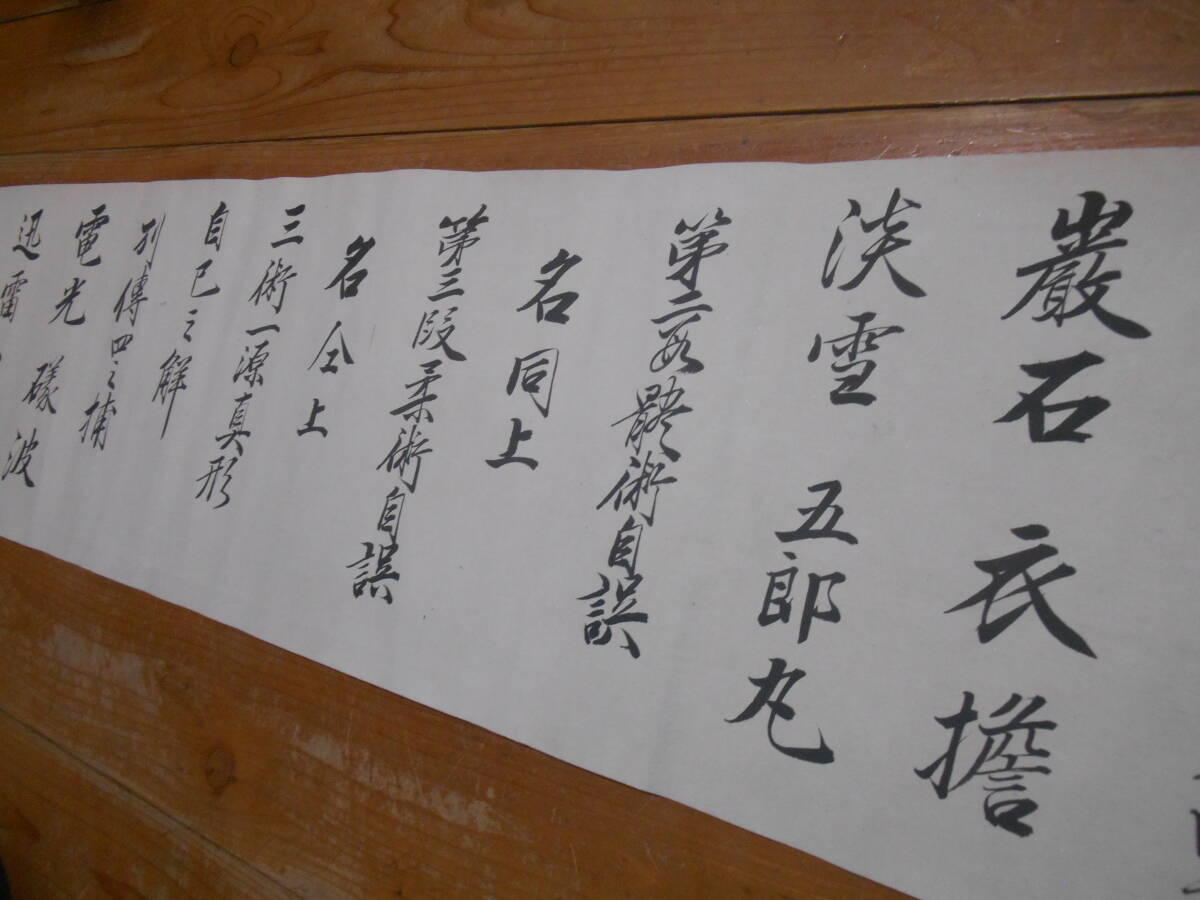 巌石 衣擔
淡雪 五郎丸
第二段 體術自誤
名同上
第三段柔術自誤
名仝上
三術一源真形
自己之解
別傳四之捕
電光 礒波
迅雷